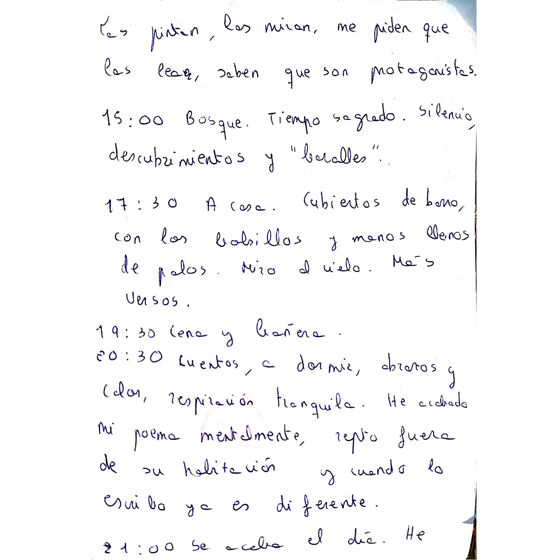 Las pintan, las miran, me piden que
las lea, saben que son protagonistas.
15:00 Bosque. Tiempo sagrado. Silencio,
descubrimientos y "baralles".
17:30 A casa. Cubiertos de barro,
con los bolsillos y manos llenos
de palos. Miro al cielo. Más
versos.
19:30 Cena y bañera.
20:30 Cuentos, a dormir, abrazos y
calor, respiración tranquila. He acabado
mi poema mentalmente, repto fuera
de su habitación y cuando lo
escribo ya es diferente.
21:00 Se acaba el día. He